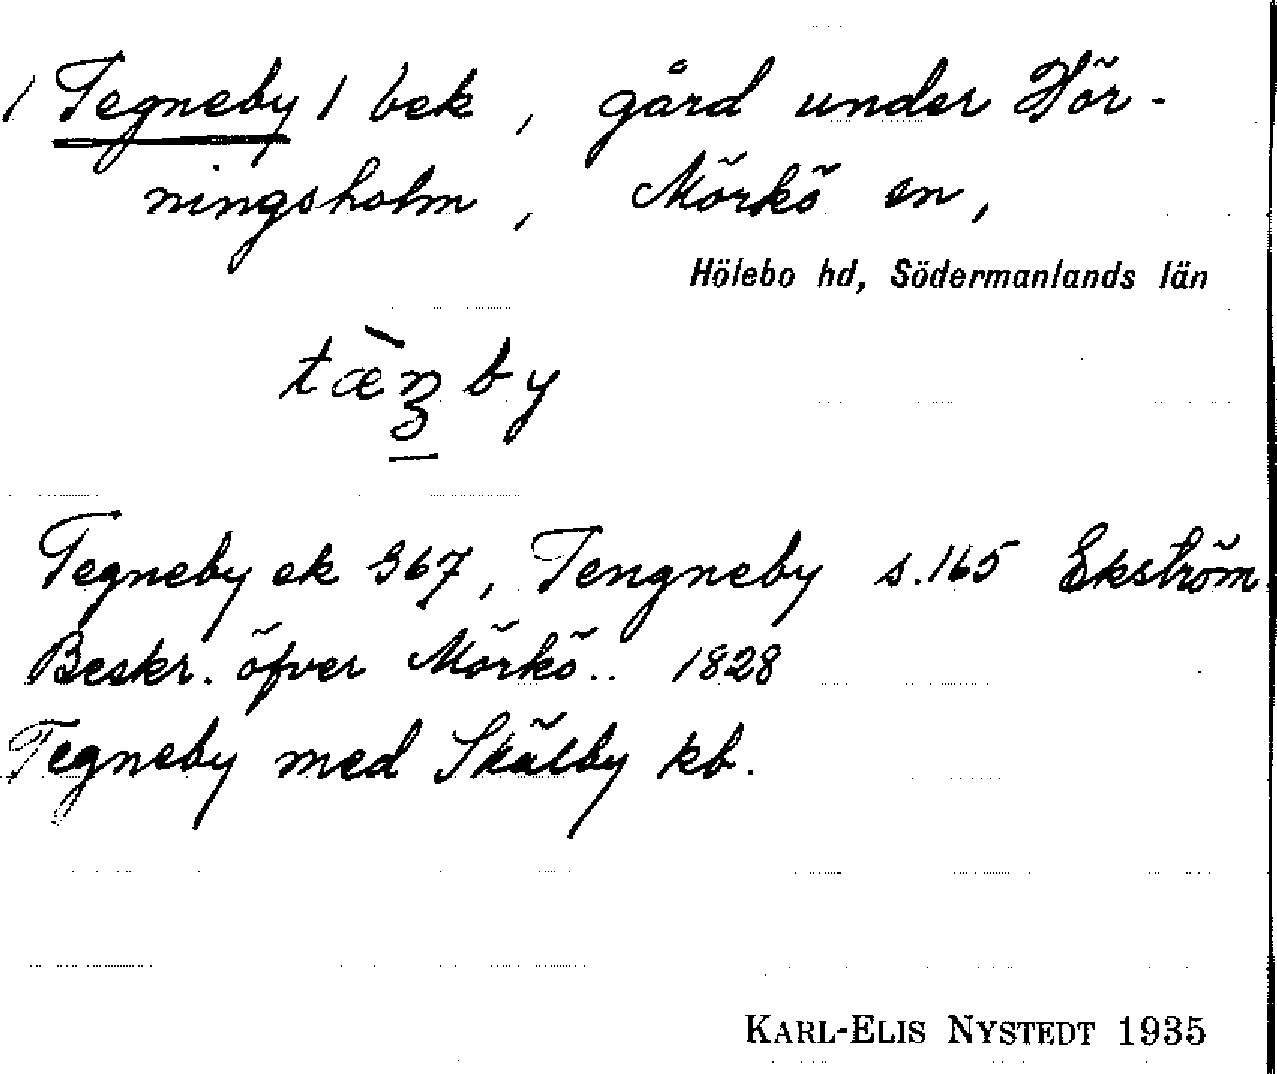 / Tegneby / bek, gård under Hör-
ningsholm, Mörkö sn,
Hölebo hd, Södermanlands län
tæ̀n̠by
Tegneby ek 367, Tengneby s. 165 Ekström
Beskr. öfver Mörkö.. 1828
Tegneby med Skälby kb.
KARL-ELIS NYSTEDT 1935